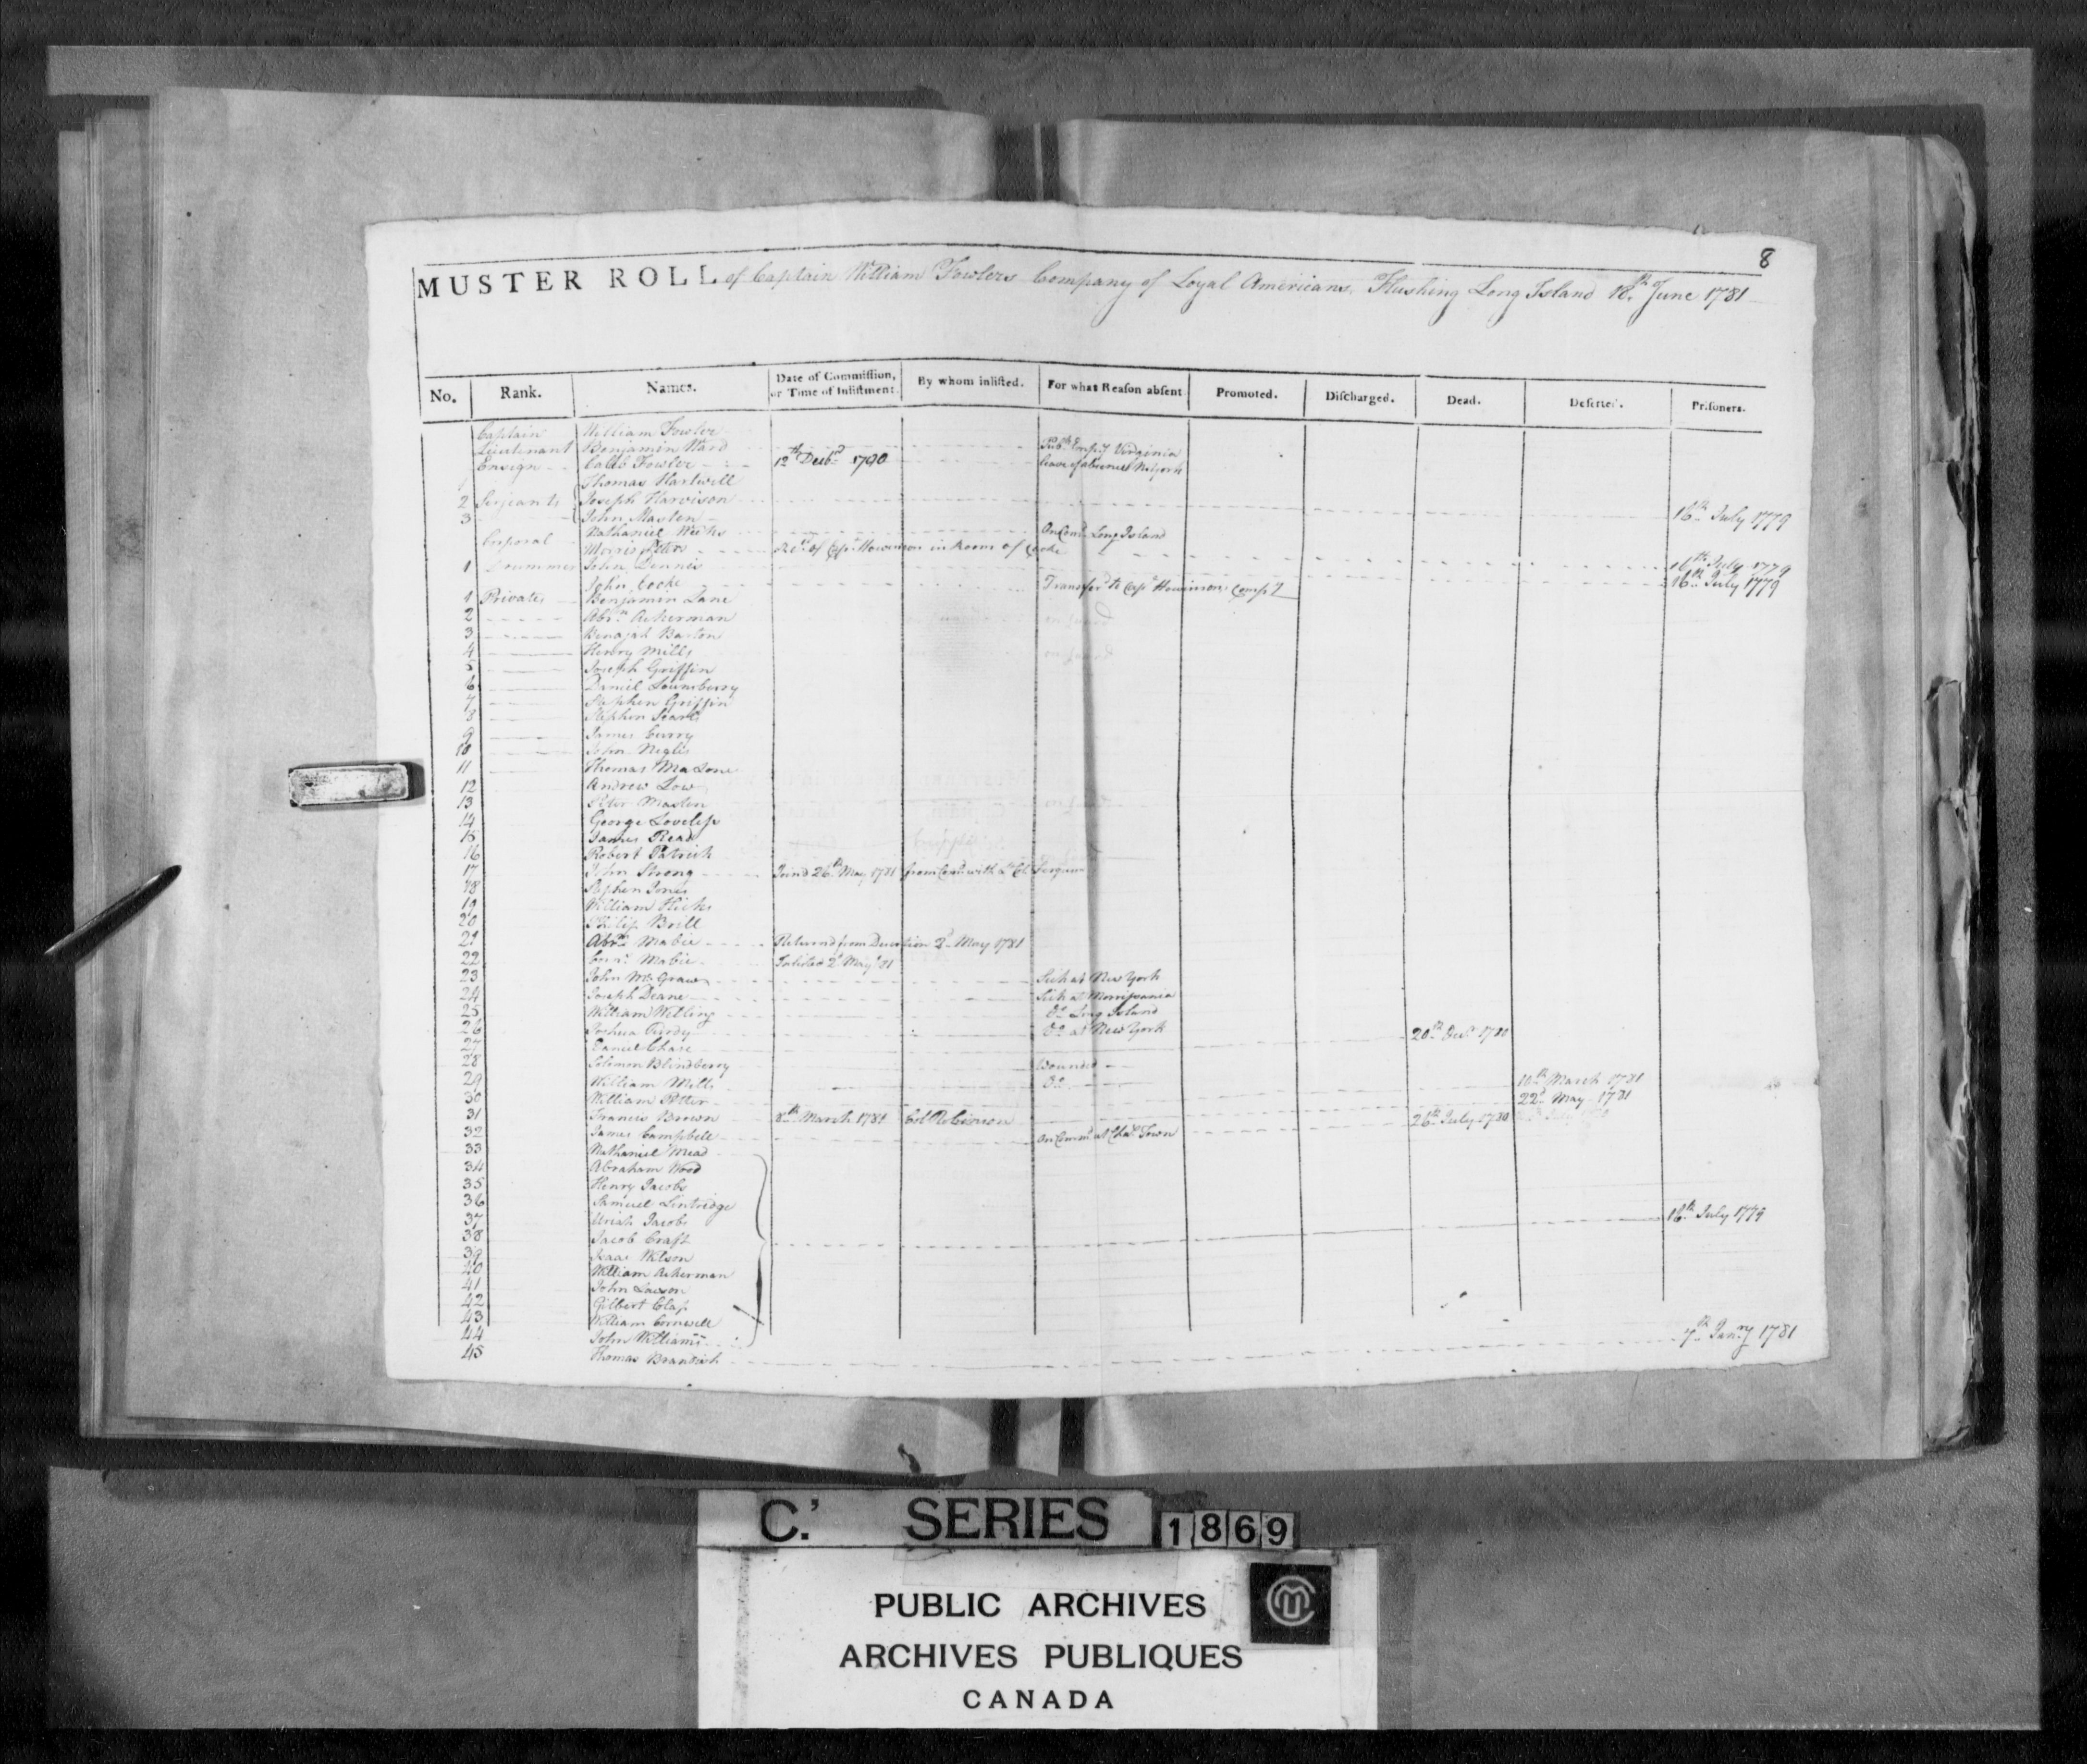 8
MUSTER ROLL of Captain William Fowlers Company of Loyal Americans. Flushing Long Island 18th of June 1781
No. Rank. Names. Date of Commission, or Time of Inlistment. By whom inlisted. For what Reason absent Promoted. Discharged. Dead. Deserted. Prisoners.
Captain William Fowler
Lieutenant Benjamin Ward Virginia
Ensign Caleb Fowler 12th Decbr 1790 leave of absence
1 Thomas Hartwell
2 Serjeants Joseph Harvison
3 John Masten 16th July 1779
Corporal Nathaniel Weeks On Comd Long Island
Morris in Room of Cocke
1 Drummer John Dennis 16th July 1779
John Cocke Transferd to Capt Howisons Compy 16th July 1779
1 Privates Benjamin Lane
2 Abrm Ackerman
3 Benajah Barton
4 Henry Mills
5 Joseph Griffin
6 Daniel Lounsberry
7 Stephen Griffin
8 Stephen Searls
9 James Curry
10 John Neglis
11 Thomas MaLone
12 Andrew Low
13 Peter Masten
14 George Loveless
15 James Read
16 Robert Patrick
17 John Strong Joind 26th May 1781 from Comd with Lt Cl Ferguson
18 Stephen Jones
19 William Hicks
20 Philip Brill
21 Abrm Mabie Returnd from Desertion 2d May 1781
22 Corns Mabie Inlisted 2d May 81
23 John McGraw Sick at New York
24 Joseph Deane Sick at Morrisania
25 William Do Long Island
26 Joshua Purdy Do at New York
27 Daniel Chase 20th Decr 1780
28 Solomon Blindberry Wounded
29 William Mills Do
30 William 10th March 1781
31 Francis Brown 8th March 1781 Col Robinson 22d May 1781
32 James Campbell 26th July 1780
33 Nathaniel Mead On Commd at Chas Town
34 Abraham Wood
35 Henry Jacobs
36 Samuel Lintridge
37 Uriah Jacobs
38 Jacob Craft 16th July 1779
39 Isaac Wilson
40 William Ackerman
41 John Lawson
42 Gilbert Clap
43 William Cornwell
44 John Williams
45 Thomas 7th Janry 1781
C.' SERIES 1869
PUBLIC ARCHIVES
ARCHIVES PUBLIQUES
CANADA